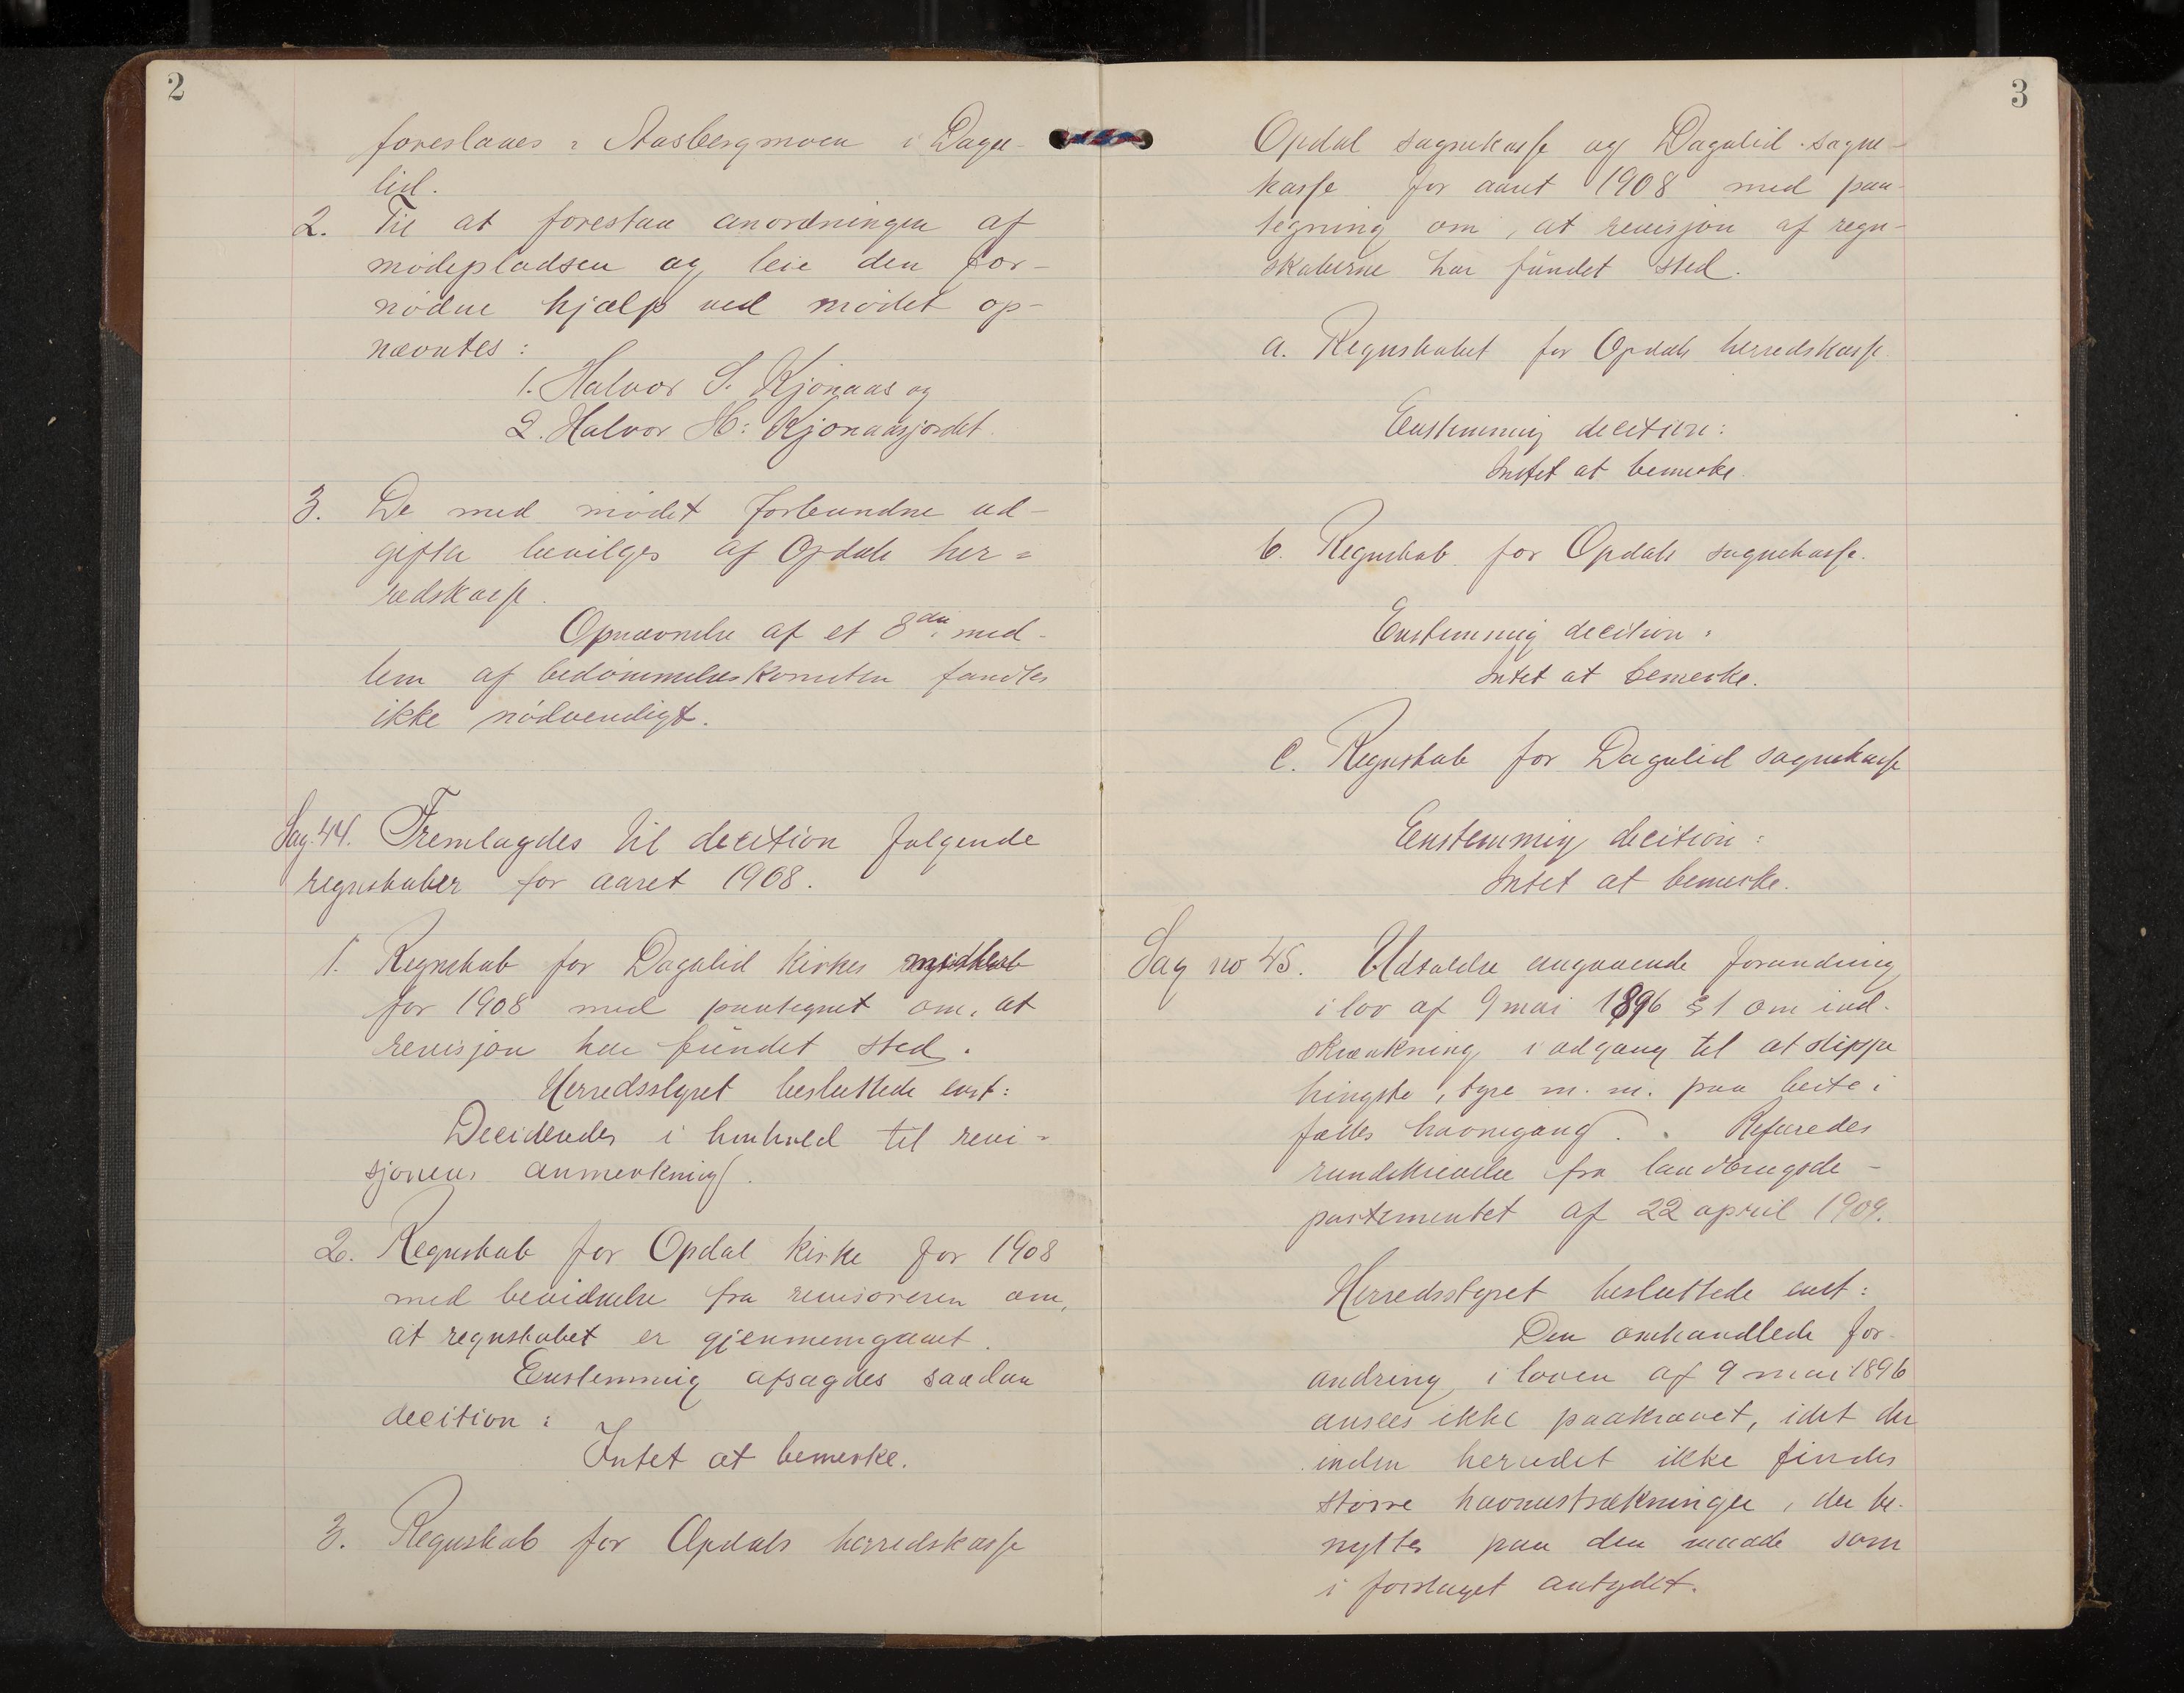 2
foreslaaes: Aasbergmoen i Daga-
lid.
2. Til at forestaa anordningen af
mödepladsen og leie den for-
nödne hjælp ved mödet op-
nævntes:
1. Halvor S. Kjönaas og
2. Halvor H: Kjönaasjordet.
3. De med mödet forbundne ud-
gifter bevilges af Opdals her=
redskasse.
Opnævnelse af et 8de med-
lem af bedömmelseskomiteen fandtes
ikke nödvendigt.
Sag. 44. Fremlagdes til decition fölgende
regnskaber for aaret 1908.
1. Regnskab for Dagalid kirkes
for 1908 med paategnet om, at
revisjon har fundet sted.
Herredsstyret besluttede enst:
Decideredes i henhold til revi=
sjonens anmerkning.
2. Regnskab for Opdal kirke for 1908
med bevidnelse fra revisoreren om,
at regnskabet er gjennemgaaet.
Enstemmig afsagdes saadan
decition:
Intet at bemerke.
3. Regnskab for Opdals herredskasse
3
Opdal sognekasse og Dagalid sogne-
kasse for aaret 1908 med paa-
tegning om, at revisjon af regn-
skaberne har fundet sted.
a. Regnskabet for Opdals herredskasse
Enstemmig decition:
Intet at bemerke.
b. Regnskab for Opdals sognekasse.
Enstemmig decition:
Intet at bemerke.
c. Regnskab for Dagalid sognekasse
Enstemmig decition:
Intet at bemerke.
Sag no 45. Udtalelse angaaende forandring
i lov af 9 mai 1896 § 1 om ind-
skrænkning i adgang til at slippe
hingste, tyre m. m. paa beite i
fælles havnegang. Refereredes
rundskrivelse fra landbrugsde-
partementet af 22 april 1909.
Herredsstyret besluttede enst:
Den omhandlede for-
andring i loven af 9 mai 1896
ansees ikke paakrævet, idet der
inden herredet ikke findes
större havnestrækninger, der be-
nyttes paa den maade som
i forslaget antydet.